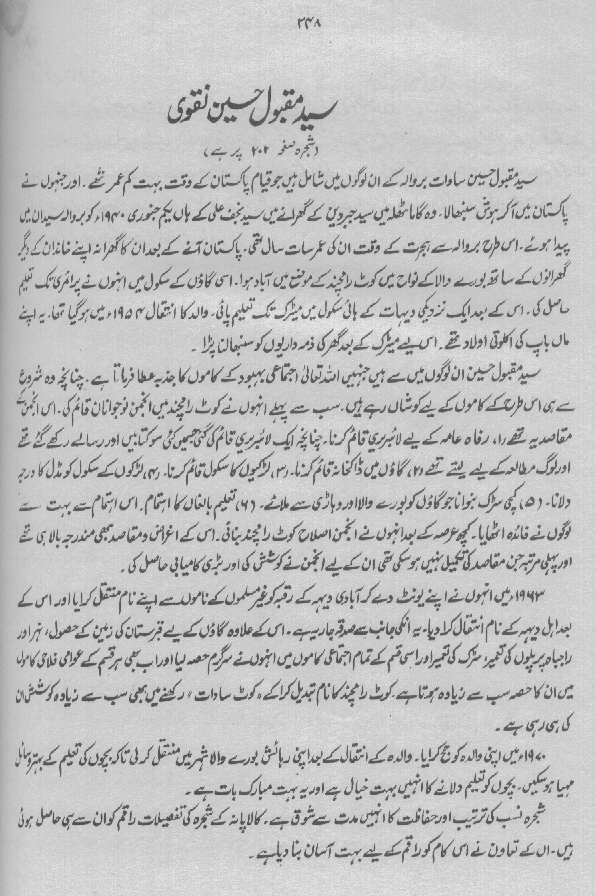 ۲۴۸
سید مقبول حسین نقوی
(شجرہ صفحہ ۲۰۲ پر ہے)
سید مقبول حسین سادات بروالہ کے ان لوگوں میں شامل ہیں جو قیام پاکستان کے وقت بہت کم عمر تھے۔ اور جنہوں نے
پاکستان میں آکر ہوش سنبھالا۔ وہ گاماٹھلہ میں سید جبروین کے گھرانے میں سید نجف علی کے ہاں یکم جنوری ۱۹۴۰ء کو بروالہ سیدان میں
پیدا ہوئے۔ اس طرح بروالہ سے ہجرت کے وقت ان کی عمر سات سال تھی۔ پاکستان آنے کے بعد ان کا گھرانہ اپنے خاندان کے دیگر
گھرانوں کے ساتھ بورے والا کے نواح میں کوٹ رامچند کے موضع میں آباد ہوا۔ اسی گاؤں کے سکول میں انہوں نے پرائمری تک تعلیم
حاصل کی۔ اس کے بعد ایک نزدیکی دیہات کے ہائی سکول میں میٹرک تک تعلیم پائی۔ والد کا انتقال ۱۹۵۴ء میں ہوگیا تھا۔ یہ اپنے
ماں باپ کی اکلوتی اولاد تھے۔ اس لیے میٹرک کے بعد گھر کی ذمہ داریوں کو سنبھالنا پڑا۔
سید مقبول حسین ان لوگوں میں سے ہیں جنہیں اللہ تعالیٰ اجتماعی بہبود کے کاموں کا جذبہ عطا فرماتا ہے۔ چنانچہ وہ شروع
سے ہی اس طرح کے کاموں کے لیے کوشاں رہے ہیں۔ سب سے پہلے انہوں نے کوٹ رامچند میں انجمن نوجوانان قائم کی۔ اس انجمن کے
مقاصد یہ تھے (۱) رفاہ عامہ کے لیے لائبریری قائم کرنا۔ چنانچہ ایک لائبریری قائم کی گئی جسمیں کئی سو کتابیں اور رسالے رکھے گئے تھے
اور لوگ مطالعہ کے لیے لیتے تھے (۲) گاؤں میں ڈاکخانہ قائم کرنا۔ (۳) لڑکیوں کا سکول قائم کرنا۔ (۴) لڑکوں کے سکول کو مڈل کا درجہ
دلانا۔ (۵) پکی سڑک بنوانا جو گاؤں کو بورے والا اور وہاڑی سے ملائے۔ (۶) تعلیم بالغاں کا اہتمام۔ اس اہتمام سے بہت سے
لوگوں نے فائدہ اٹھایا۔ کچھ عرصہ کے بعد انہوں نے انجمن اصلاح کوٹ رامچند بنائی۔ اس کے اغراض و مقاصد بھی مندرجہ بالا ہی تھے
اور پہلی مرتبہ جن مقاصد کی تکمیل نہیں ہوسکی تھی ان کے لیے انجمن نے کوشش کی اور بڑی کامیابی حاصل کی۔
۱۹۶۳ء میں انہوں نے اپنے یونٹ دے کر آبادی دیہہ کے رقبہ کو غیر مسلموں کے ناموں سے اپنے نام منتقل کرایا اور اس کے
بعد اہل دیہہ کے نام انتقال کرا دیا۔ یہ انکی جانب سے صدقہ جاریہ ہے۔ اس کے علاوہ گاؤں کے لیے قبرستان کی زمین کے حصول، نہر اور
راجباہ پر پلوں کی تعمیر، سڑک کی تعمیر اور اسی قسم کے تمام اجتماعی کاموں میں انہوں نے سرگرم حصہ لیا اور اب بھی ہر قسم کے عوامی فلاحی کاموں
میں ان کا حصہ سب سے زیادہ ہوتا ہے۔ کوٹ رامچند کا نام تبدیل کرا کے "کوٹ سادات" رکھنے میں بھی سب سے زیادہ کوشش ان
کی ہی رہی ہے۔
۱۹۷۰ء میں اپنی والدہ کو حج کرایا۔ والدہ کے انتقال کے بعد اپنی رہائش بورے والا شہر میں منتقل کر لی تاکہ بچوں کی تعلیم کے بہتر وسائل
مہیا ہوسکیں۔ بچوں کو تعلیم دلانے کا انہیں بہت خیال ہے اور یہ بہت مبارک بات ہے۔
شجرہ نسب کی ترتیب اور حفاظت کا انہیں مدت سے شوق ہے۔ کالا پانہ کے شجرہ کی تفصیلات راقم کو ان سے ہی حاصل ہوئی
ہیں۔ ان کے تعاون نے اس کام کو راقم کے لیے بہت آسان بنا دیا ہے۔